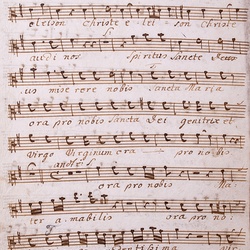 eleison Christe e - lei - son Christe
audi nos Spiritus Sancte Deus
us mise rere nobis Sancta Maria
ora pro nobis Sancta Dei genitrix et
Virgo Virginum ora pro no bis
ora pro nobis Ma
ter a mabilis ora pro no